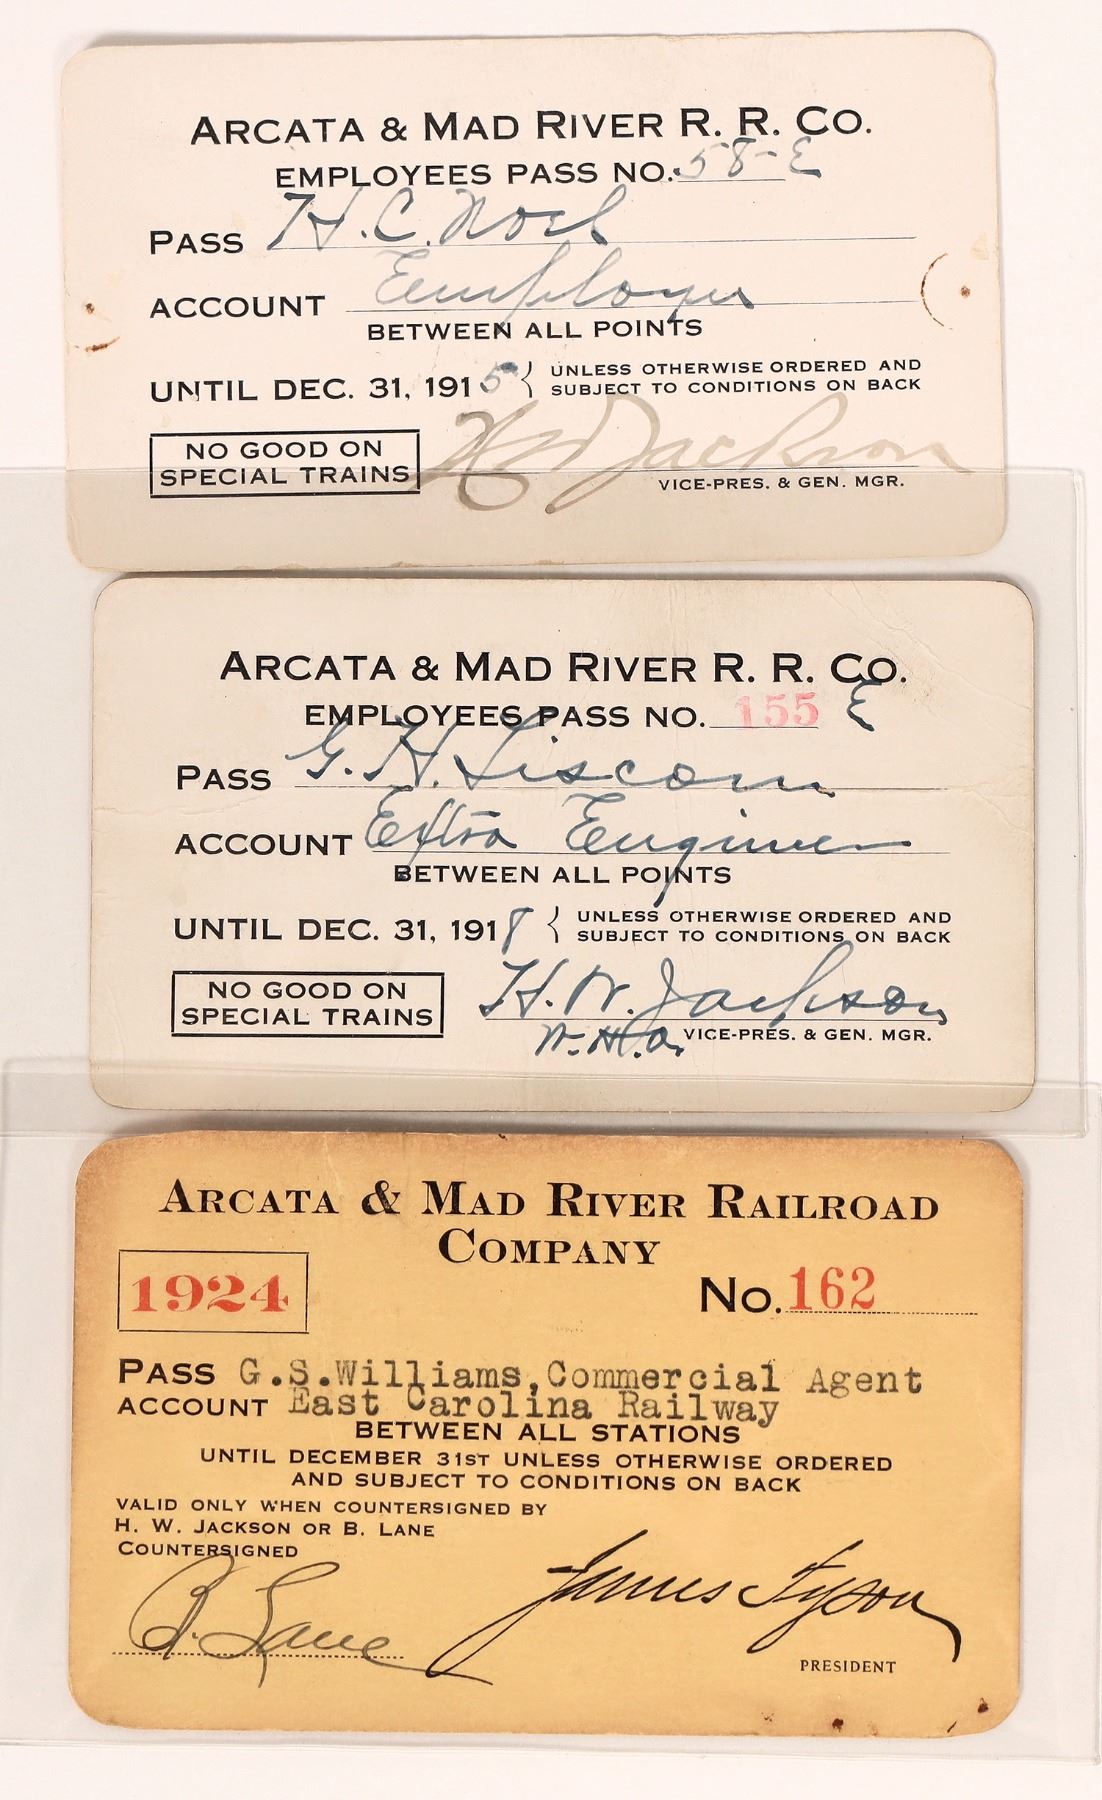 ARCATA & MAD RIVER R. R. CO.
EMPLOYEES PASS NO. 58-E
PASS H. C. Noel
ACCOUNT Employee
BETWEEN ALL POINTS
UNTIL DEC. 31, 1915 { UNLESS OTHERWISE ORDERED AND
SUBJECT TO CONDITIONS ON BACK
NO GOOD ON
SPECIAL TRAINS
H W Jackson
VICE-PRES. & GEN. MGR.
ARCATA & MAD RIVER R. R. CO.
EMPLOYEES PASS NO. 155 E
PASS G. H. Liscom
ACCOUNT Extra Engineer
BETWEEN ALL POINTS
UNTIL DEC. 31, 1918 { UNLESS OTHERWISE ORDERED AND
SUBJECT TO CONDITIONS ON BACK
NO GOOD ON
SPECIAL TRAINS
H. W. Jackson
W. H. O. VICE-PRES. & GEN. MGR.
ARCATA & MAD RIVER RAILROAD
COMPANY
1924
No. 162
PASS G.S.Williams,Commercial Agent
ACCOUNT East Carolina Railway
BETWEEN ALL STATIONS
UNTIL DECEMBER 31ST UNLESS OTHERWISE ORDERED
AND SUBJECT TO CONDITIONS ON BACK
VALID ONLY WHEN COUNTERSIGNED BY
H. W. JACKSON OR B. LANE
COUNTERSIGNED
B. Lane
James Tyson
PRESIDENT